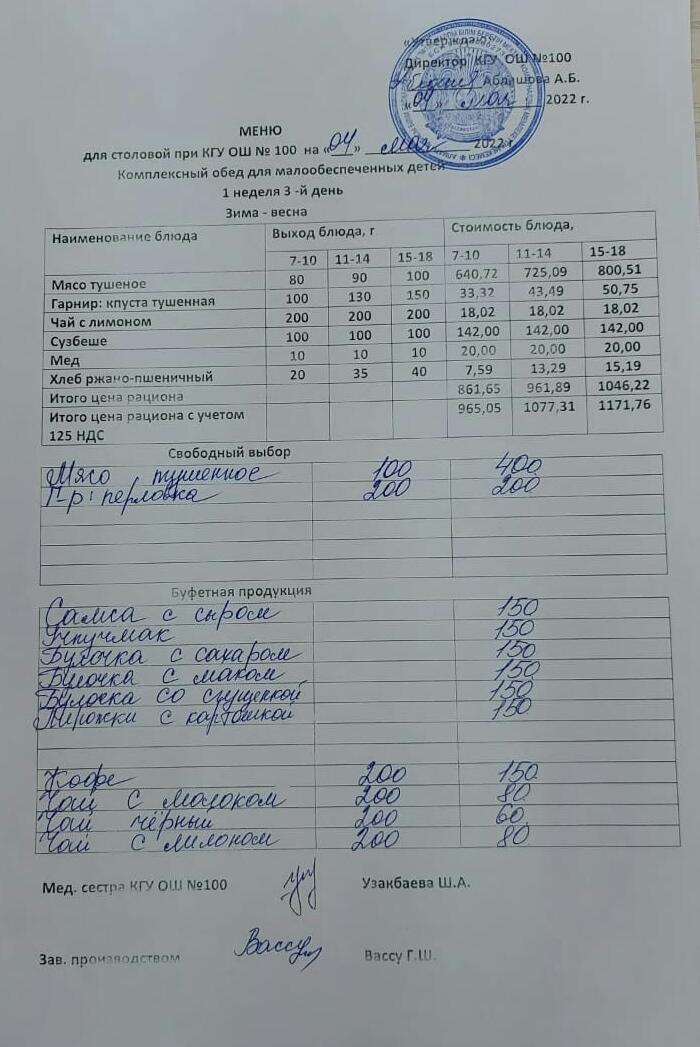 «Утверждаю»
Директор КГУ ОШ №100
Аблашова А.Б.
«04» мая 2022 г.
МЕНЮ
для столовой при КГУ ОШ № 100 на «04» мая 2022 г
Комплексный обед для малообеспеченных детей
1 неделя 3 -й день
Зима - весна
Наименование блюда Выход блюда, г Стоимость блюда,
7-10 11-14 15-18 7-10 11-14 15-18
Мясо тушеное 80 90 100 640,72 725,09 800,51
Гарнир: кпуста тушенная 100 130 150 33,32 43,49 50,75
Чай с лимоном 200 200 200 18,02 18,02 18,02
Сузбеше 100 100 100 142,00 142,00 142,00
Мед 10 10 10 20,00 20,00 20,00
Хлеб ржано-пшеничный 20 35 40 7,59 13,29 15,19
Итого цена рациона 861,65 961,89 1046,22
Итого цена рациона с учетом 965,05 1077,31 1171,76
125 НДС
Свободный выбор
Мясо тушенное 100 400
Г-р: перловка 200 200
Буфетная продукция
Самса с сыром 150
Учпучмак 150
Булочка с сахаром 150
Булочка с маком 150
Булочка со сгущенкой 150
Пирожки с картошкой 150
Кофе 200 150
Чай с молоком 200 80
Чай чёрный 200 60
Чай с лимоном 200 80
Мед. сестра КГУ ОШ №100 Узакбаева Ш.А.
Зав. производством Вассу Вассу Г.Ш.